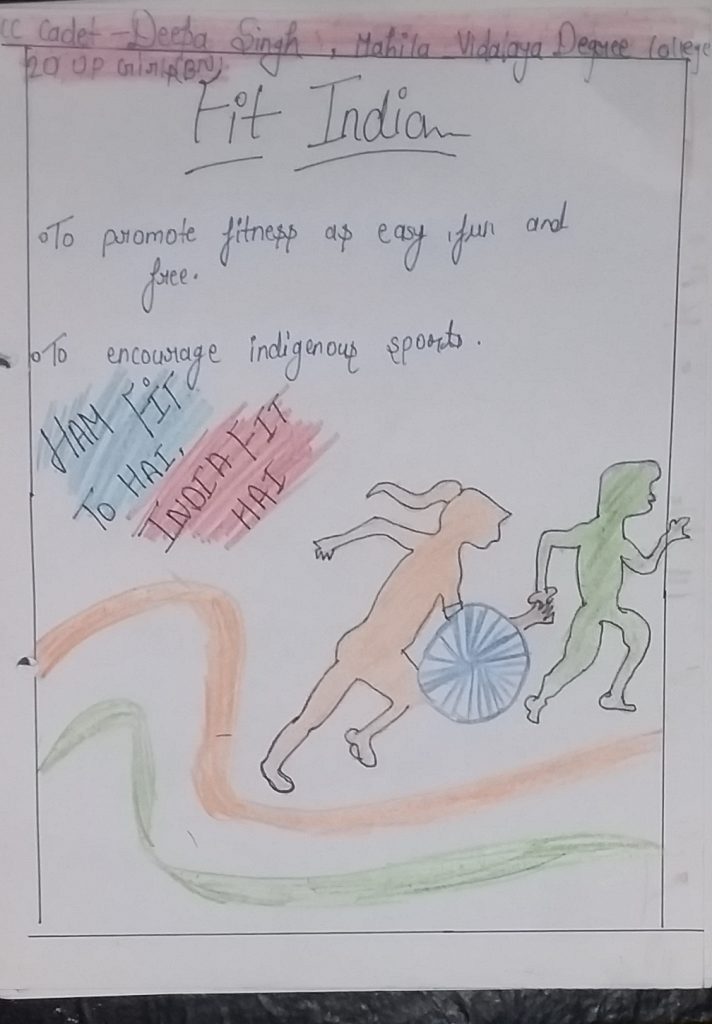 CC Cadet - Deepa Singh , Mahila Vidalaya Degree College
20 UP Girls(BN)
Fit Indian
To promote fitness as easy, fun and
free.
To encourage indigenous sports.
HAM FIT
TO HAI,
INDIA FIT
HAI